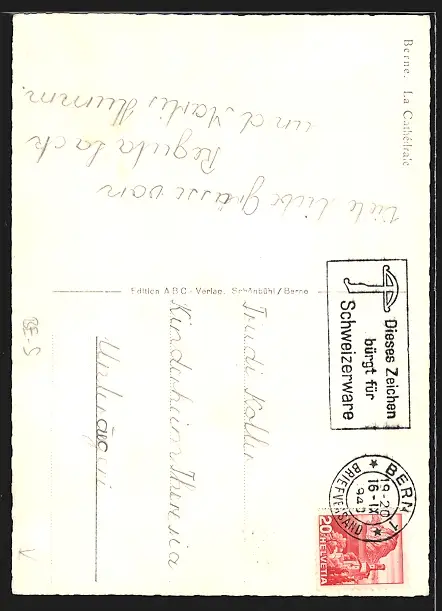 Berne. La Cathédrale
Viele liebe Grüsse von
Regula Jack
und Marlis Humm.
Edition ABC-Verlag, Schönbühl/Berne
Dieses Zeichen
bürgt für
Schweizerware
BERN 1
19-20
16-IX
BRIEFVERSAND
20 HELVETIA
Trudi
Kinderheim Theresia
Unterägeri
BE-S